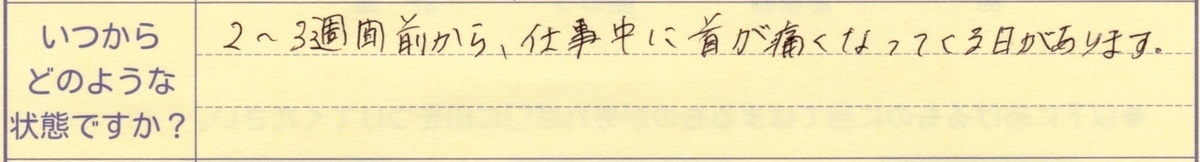 いつから
どのような
状態ですか？
2～3週間前から、仕事中に首が痛くなってくる日があります。